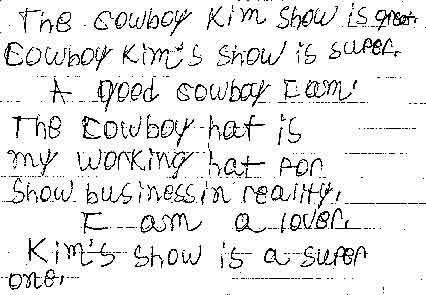 The cowboy Kim show is great.
Cowboy Kim's show is super.
A good cowboy I am.
The cowboy hat is
my working hat for
show business in reality.
I am a lover.
Kim's show is a super
one.